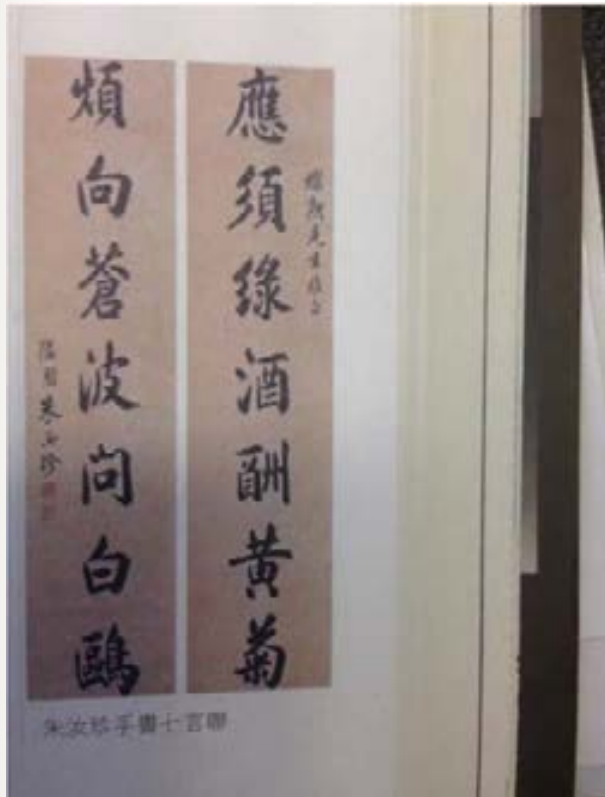 應須綠酒酬黃菊
煩向蒼波問白鷗
朱汝珍
朱汝珍手書七言聯